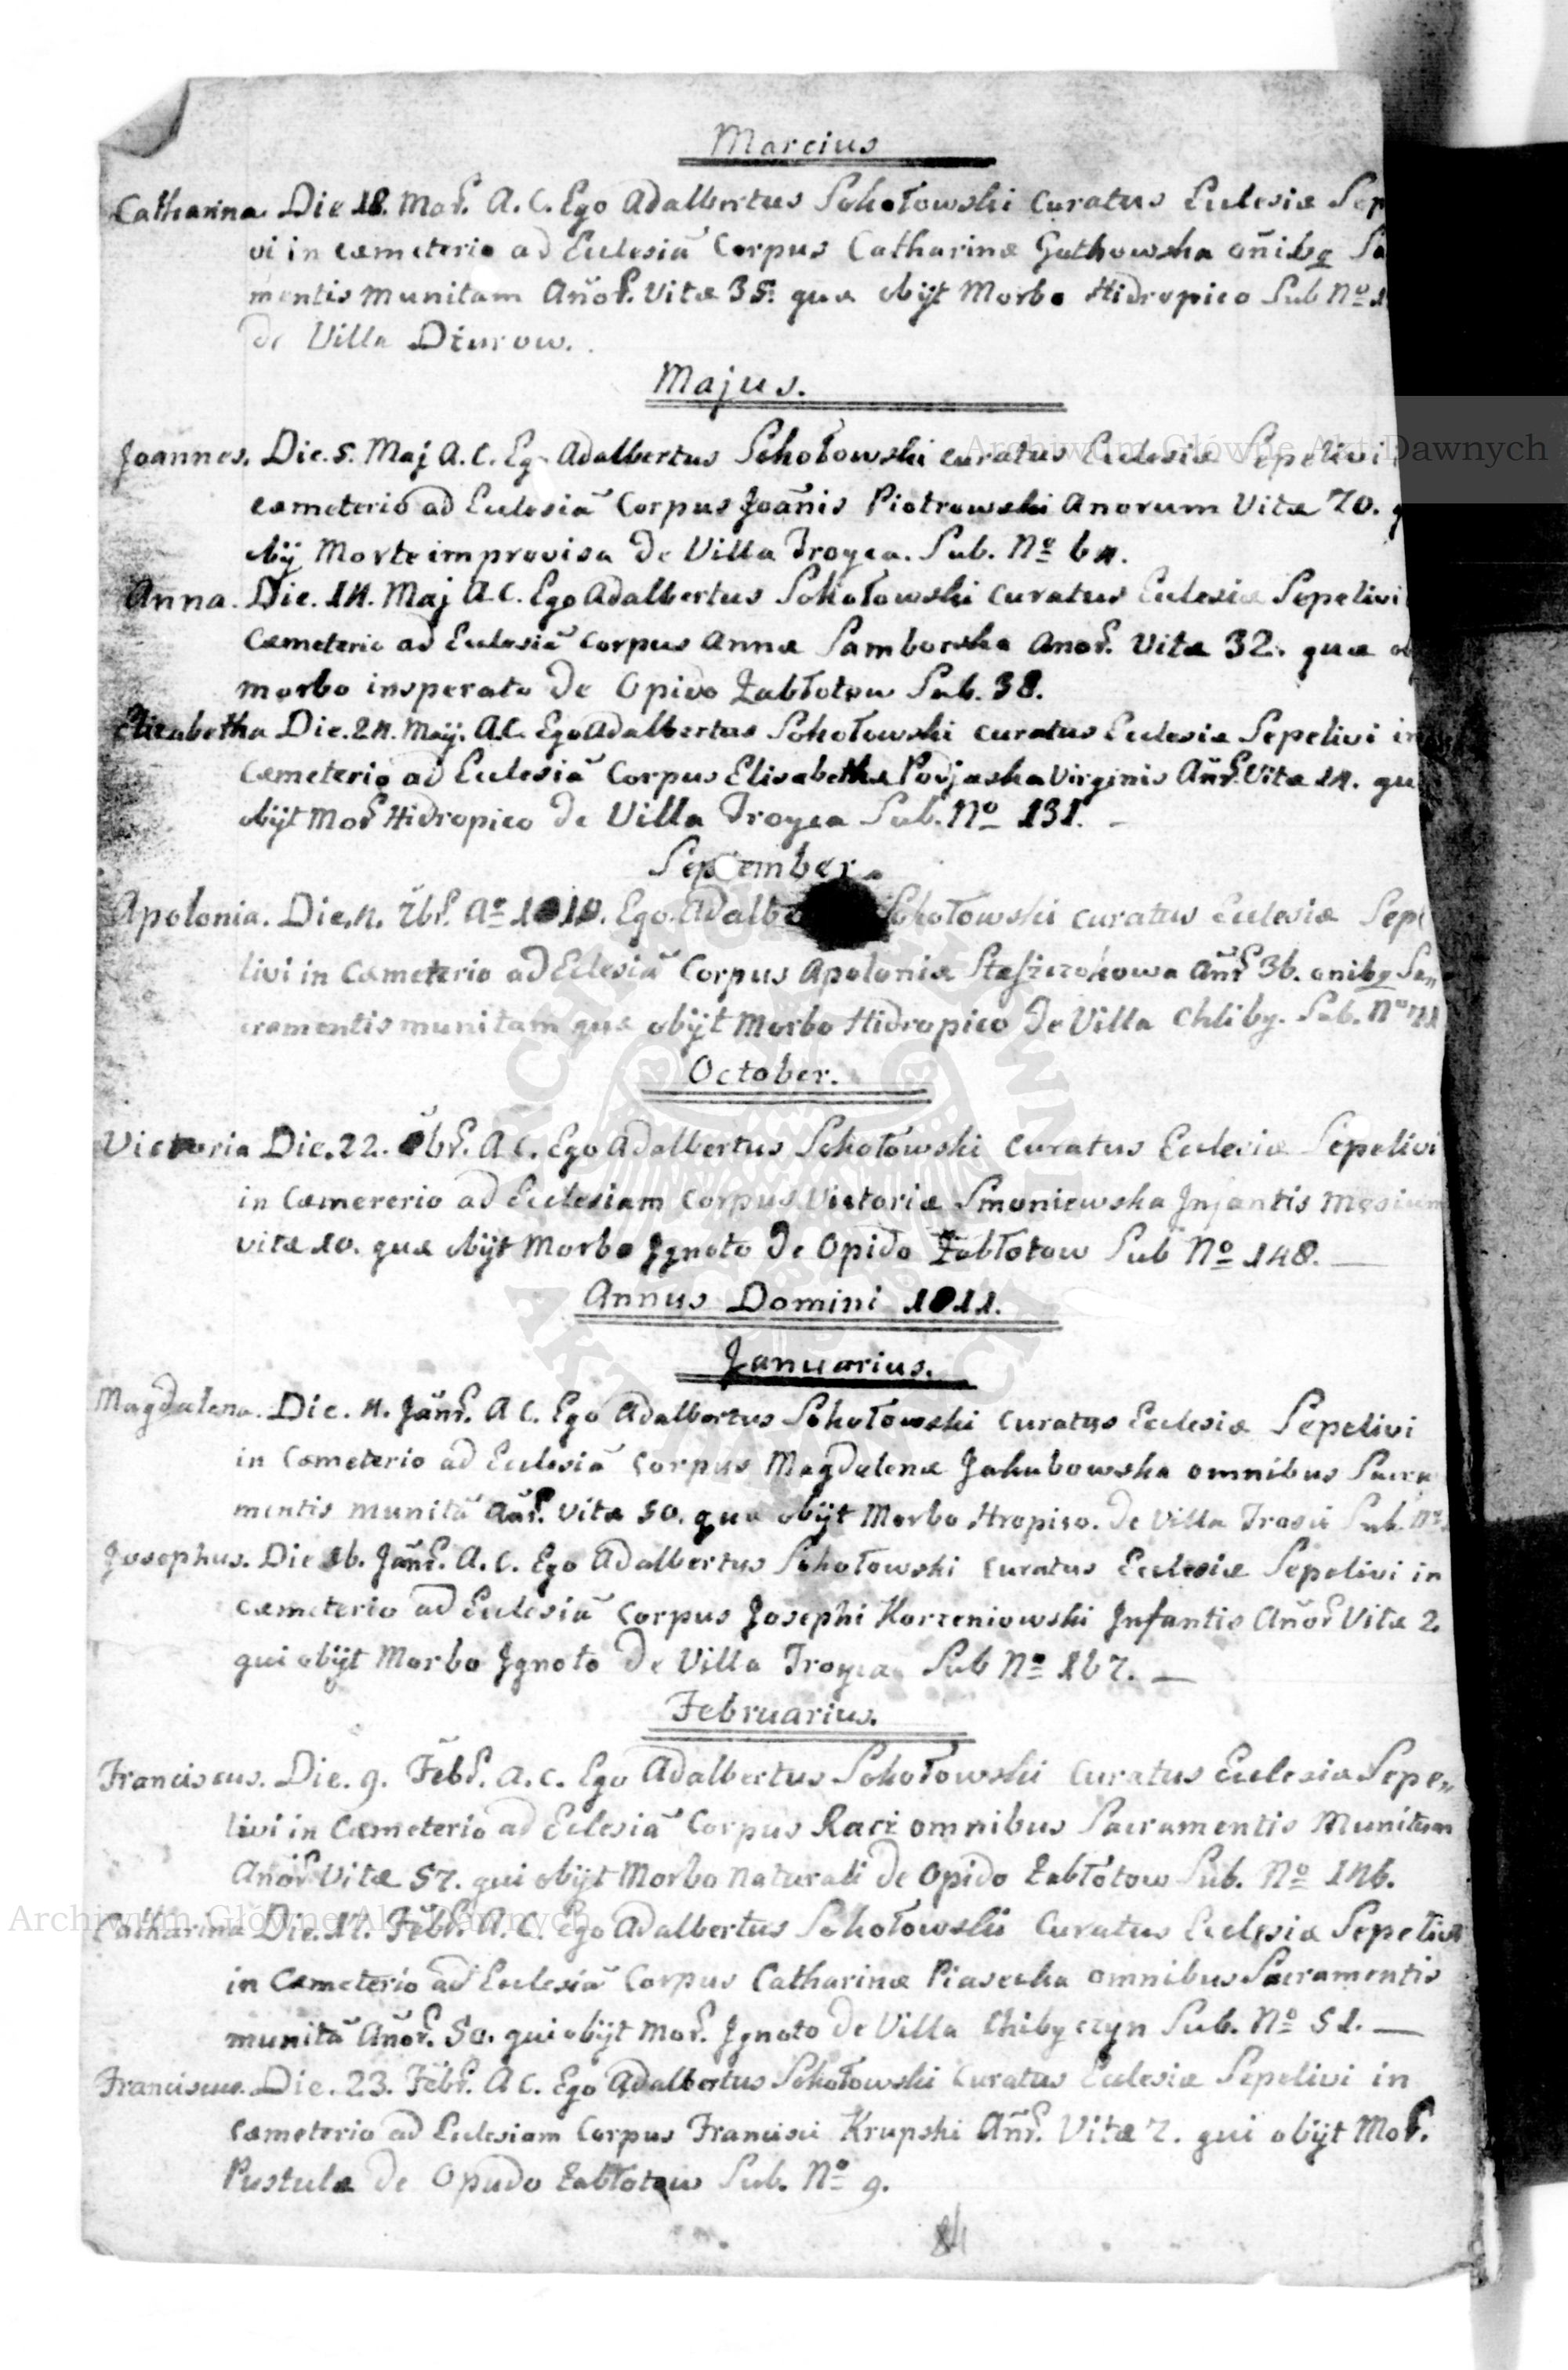 Marcius
Catharina. Die 18. Mar. A. C. Ego Adalbertus Sokołowski Curatus Eclesiæ Sep
vi in cæmeterio ad Eclesiã Corpus Catharinæ Gutkowska oñibq Sa
mentis munitam Añor. Vitæ 35. quæ obijt Morbo Hidropico Sub No 1
de Villa Dżurow.
Majus.
Joannes. Die. 5. Maj A. C. Ego Adalbertus Sokołowski curatus Eclesiæ Sepelivi
cæmeterio ad Eclesiã Corpus Joãnis Piotrowski Anorum Vitæ 70. q
obij Morte improvisa de Villa Troyca. Sub. No 64.
Anna. Die. 14. Maj A. C. Ego Adalbertus Sokołowski curatus Eclesiæ Sepelivi
Cæmeterio ad Eclesiã Corpus Annæ Samborska Anor. Vitæ 32. quæ ob
morbo insperato de Opido Zabłotow Sub. 38.
Elizabetha Die. 24. Maij. A. C. Ego Adalbertus Sokołowski curatus Eclesiæ Sepelivi in
Cæmeterio ad Eclesiã Corpus Elisabethæ Podjaska Virginis Añr. Vitæ 14. qu
obijt Mor Hidropico de Villa Troyca Sub. No 131. –
September.
Apolonia. Die. 4. 7br. Ao 1810. Ego Adalbe Sokołowski curatus Eclesiæ Sepe
livi in Cæmeterio ad Eclesiã Corpus Apoloniæ Añr 36. onibq Sa„
cramentis munitam quæ obijt Morbo Hidropico de Villa Chliby. Sub. No
October.
Victoria Die. 22. 8br. A C. Ego Adalbertus Sokołowski Curatus Eclesiæ Sepelivi
in Cæmererio ad Ecclesiam Corpus Victoriæ Smoniewska Jnfantis Mesium
vitæ 10. quæ obijt Morbo Jgnoto de Opido Zabłotow Sub No 148. —
Annus Domini 1811.
Januarius.
Magdalena. Die. 4. Jãnr. A C. Ego Adalbertus Sokołowski Curatus Ecclesiæ Sepelivi
in Cæmeterio ad Eclesiã Corpus Magdalenæ Jakubowska omnibus Sacra
mentis munitã Añr. Vitæ 50. quæ obijt Morbo Hropico. de Villa Sub. No
Josephus. Die 16. Jãnr. A. C. Ego Adalbertus Sokołowski curatus Ecclesiæ Sepelivi in
cæmeterio ad Eclesiã Corpus Josephi Korzeniowski Jnfantis Añor Vitæ 2.
qui obijt Morbo Jgnoto de Villa Troyca Sub No 167. —
Februarius.
Franciscus. Die. 9. Febr. A. C. Ego Adalbertus Sokołowski Curatus Eclesiæ Sepe„
livi in Cæmeterio ad Eclesiã Corpus Racz omnibus Sacramentis Munitam
Añor Vitæ 57. qui obijt Morbo Naturali de Opido Zabłotow Sub. No 146.
Catharina Die. 17. Febr. A. C. Ego Adalbertus Sokołowski Curatus Eclesiæ Sepelivi
in Cæmeterio ad Eclesiã Corpus Catharinæ Piasecka omnibus Sacramentis
munitã Añor. 50. qui obijt Mor. Jgnoto de Villa Chibyczyn Sub. No 51. —
Franciscus. Die. 23. Febr. A C. Ego Adalbertus Sokołowski Curatus Eclesiæ Sepelivi in
Cæmeterio ad Eclesiam Corpus Francisci Krupski Añr. Vitæ 7. qui obijt Mor.
Pustulæ de Opudo Zabłotow Sub. No 9.
84
Archiwum Główne Akt Dawnych
Archiwum Główne Akt Dawnych
ARCHIWUM GŁÓWNE AKT DAWNYCH